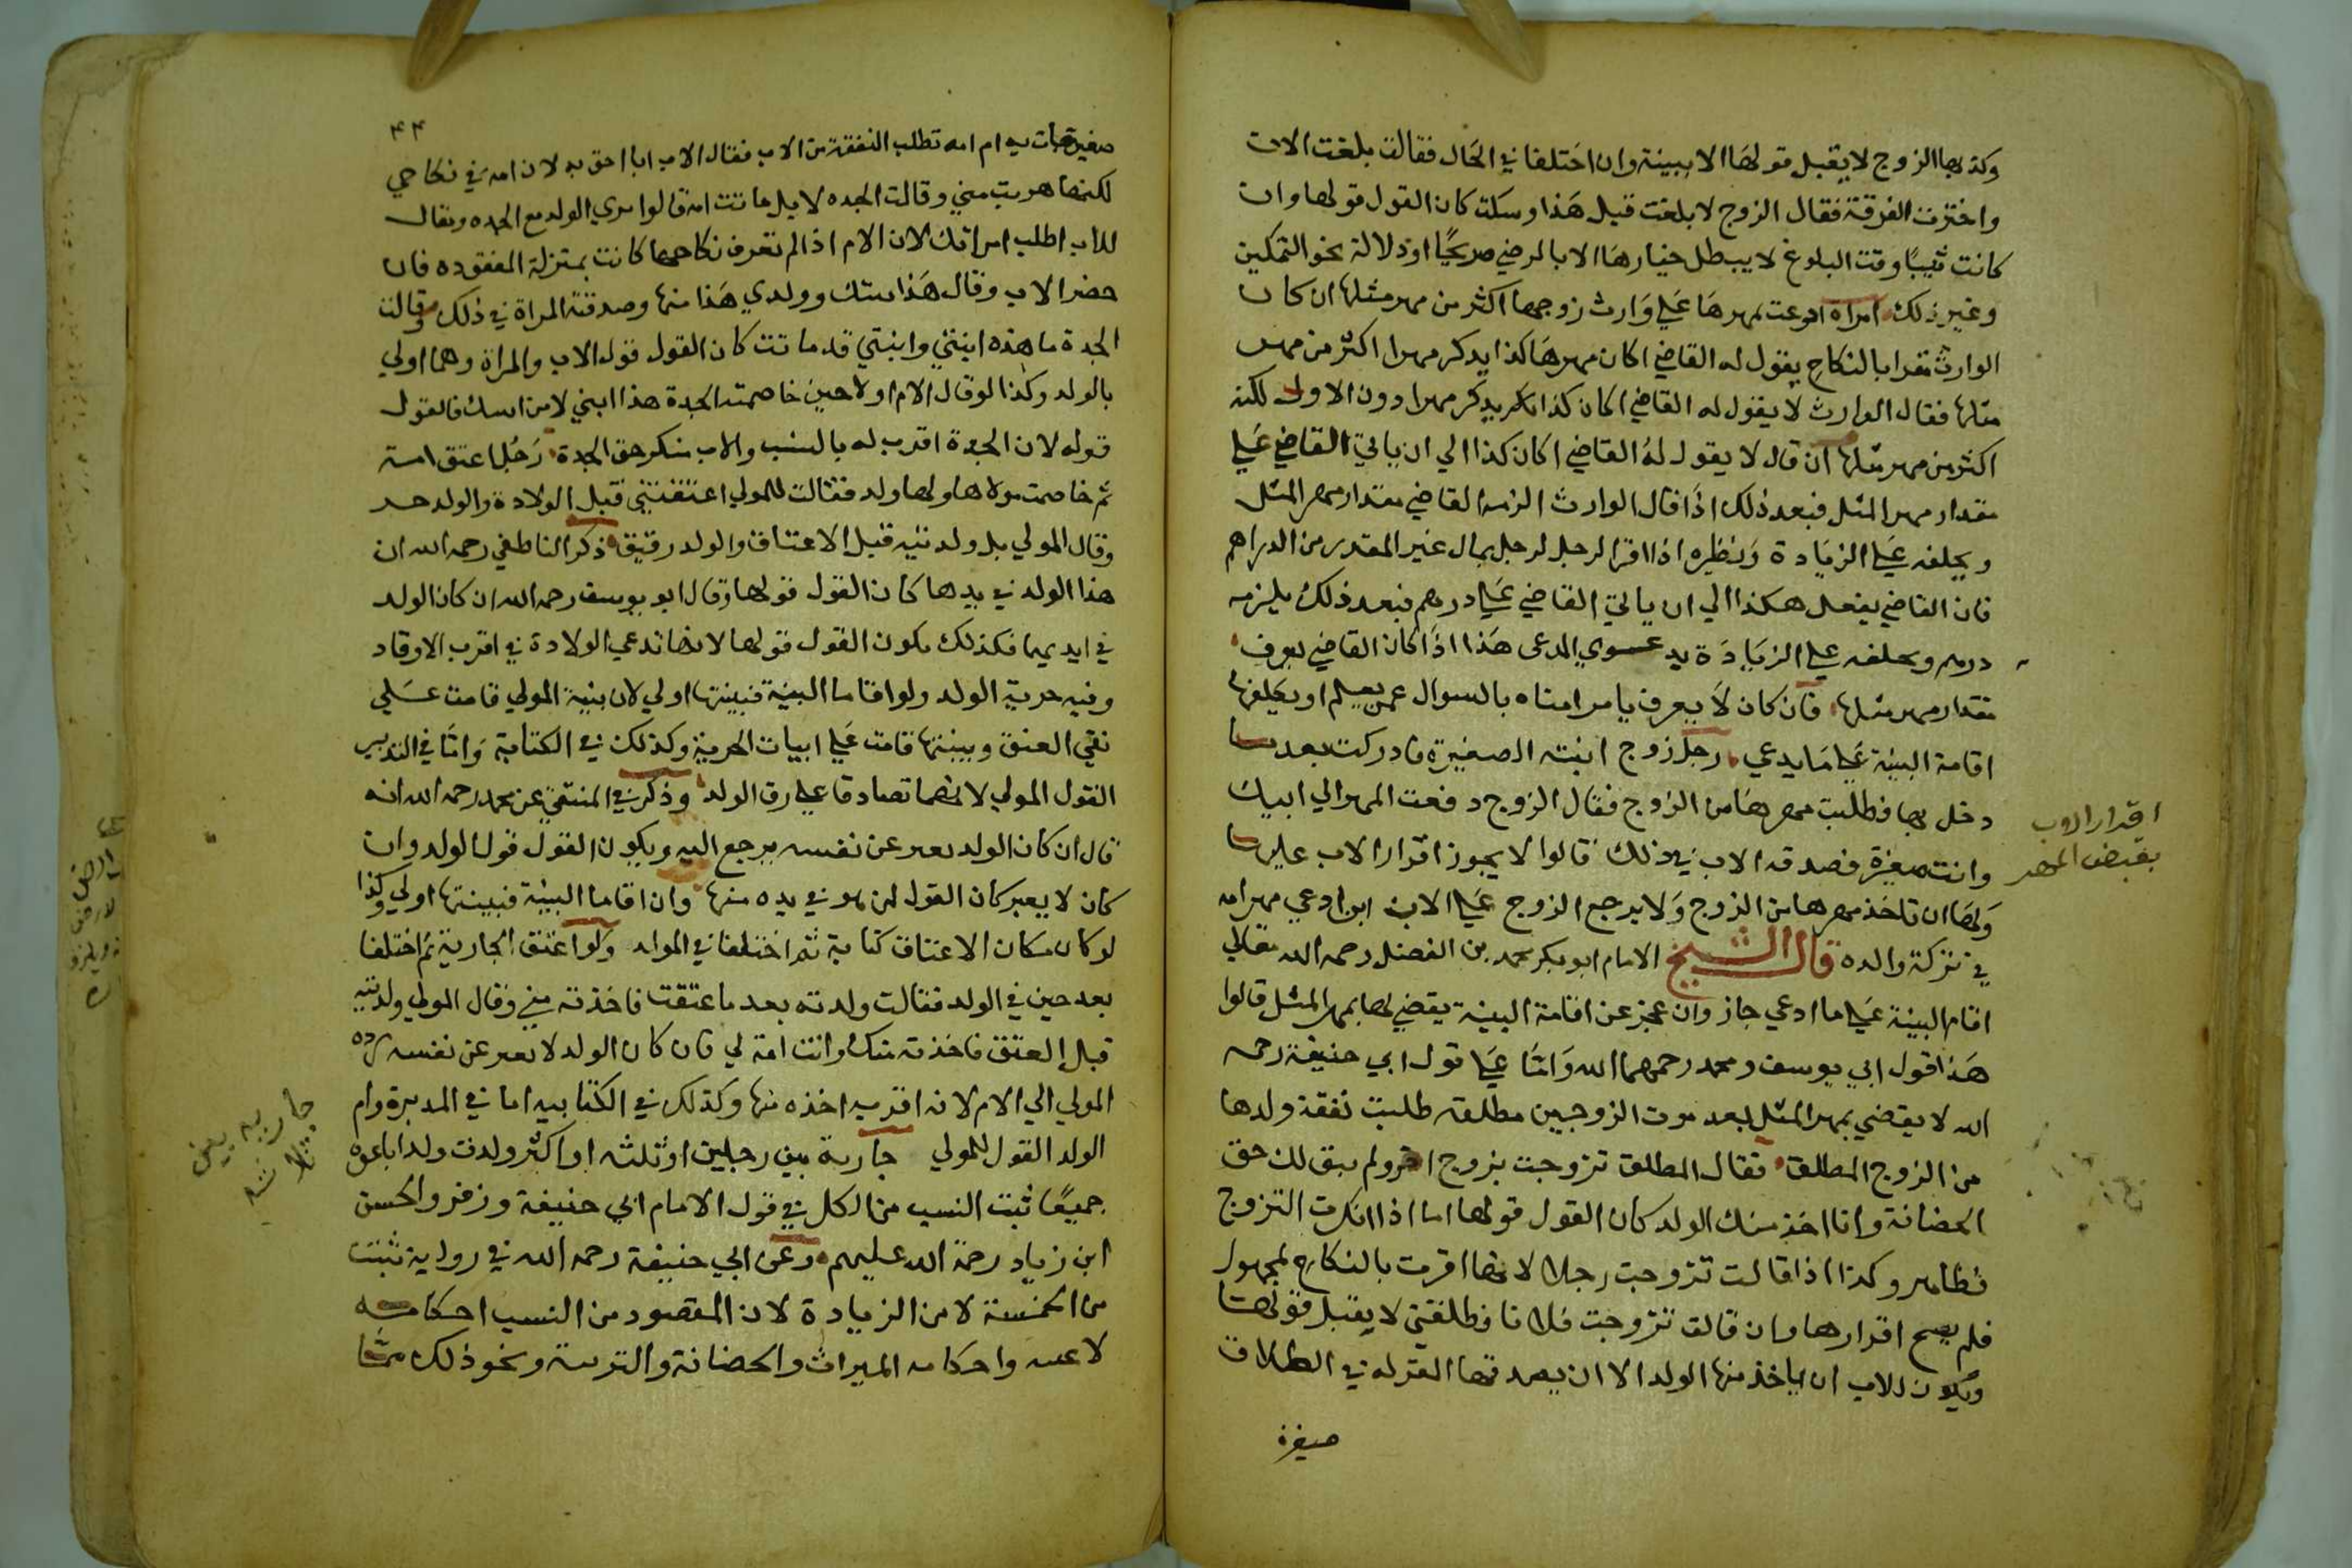 وكذبها الزوج لا يقبل قولها الا ببينة وان اختلفا في الحال فقالت بلغت الان
واخترت الفرقة فقال الزوج لا بلغت قبل هذا وسكت كان القول قولها وان
كانت ثيبا وقت البلوغ لا يبطل خيارها الا بالرضي صريحا او دلالة نحو التمكين
وغير ذلك امراة ادعت مهرها علي وارث زوجها اكثر من مهر مثلها ان كان
الوارث مقرا بالنكاح يقول له القاضي اكان مهرها كذا يذكر مهرا اكثر من مهر
مثلها فقال الوارث لا يقول له القاضي اكان كذا يذكر مهرا دون الاول لكنه
اكثر من مهر مثلها ان قال لا يقول له القاضي اكان كذا الي ان ياتي القاضي علي
مقدار مهر المثل فبعد ذلك اذا قال الوارث الزمه القاضي مقدار مهر المثل
ويحلفه علي الزيادة ونظيره اذا اقر الرجل لرجل بمال غير المقدر من الدراهم
فان القاضي يفعل هكذا الي ان ياتي القاضي علي درهم فبعد ذلك يلزمه
درهم ويحلفه علي الزيادة يدعوي المدعى هذا اذا كان القاضي يعرف
مقدار مهر مثلها فان كان لا يعرف يامر امناه بالسوال عمن يعلم او يكلفها
اقامة البينة علي ما يدعي رجل زوج ابنته الصغيرة فادركت بعد ما
دخل بها فطلبت مهرها من الزوج فقال الزوج دفعت المهر الي ابيك
وانت صغيرة فصدقه الاب في ذلك قالوا لا يجوز اقرار الاب عليها
ولها ان تاخذ مهرها من الزوج ولا يرجع الزوج علي الاب ابن ادعي مهر امه
في تركة والده قال الشيخ الامام ابو بكر محمد بن الفضل رحمه الله تعالي
اقام البينة علي ما ادعي جاز وان عجز عن اقامة البينة يقضي لها بمهر المثل قالوا
هذا قول ابي يوسف ومحمد رحمهما الله واما علي قول ابي حنيفة رحمه
الله لا يقضي بمهر المثل بعد موت الزوجين مطلقه طلبت نفقة ولدها
من الزوج المطلق فقال المطلق تزوجت بزوج اخر ولم يبق لك حق
الحضانة وانا اخذ منك الولد كان القول قولها اما اذا انكرت التزوج
فظاهر وكذا اذا قالت تزوجت رجلا لانها اقرت بالنكاح لمجهول
فلم يصح اقرارها وان قالت تزوجت فلانا فطلقني لا يقبل قولها
ويكون للاب ان ياخذ منها الولد الا ان يصدقها المقر له في الطلاق
صغيرة
اقرار الاب
بقبض المهر
٤٤
صغيرة جات به ام امه تطلب النفقة من الاب فقال الاب انا احق به لان امه في نكاحي
لكنها هربت مني وقالت الجده لا بل ماتت امه قالوا يري الولد مع الجده ويقال
للاب اطلب امراتك لان الام اذا لم تعرف نكاحها كانت بمنزلة المفقوده فان
حضر الاب وقال هذا بنتك وولدي هذا منها وصدقته المراة في ذلك وقالت
الجدة ما هذه ابنتي وابنتي قد ماتت كان القول قول الاب والمراة وهما اولي
بالولد وكذا لو قال الام اولا حين خاصمته الجدة هذا ابني لا من ابنتك فالقول
قوله لان الجدة اقرب له بالنسب والاب منكر حق الجدة رجل اعتق امته
ثم خاصمت مولاها ولها ولد فقالت للمولي اعتقتني قبل الولادة والولد حر
وقال المولي بل ولدتيه قبل الاعتاق والولد رقيق ذكر الناطفي رحمه الله ان
هذا الولد في يدها كان القول قولها وقال ابو يوسف رحمه الله ان كان الولد
في ايديهما فكذلك يكون القول قولها لانها تدعي الولادة في اقرب الاوقاد
وفيه حرية الولد ولو اقاما البينة فبينتها اولي لان بنية المولي قامت علي
نفي العتق وبينتها قامت علي اثبات الحرية وكذلك في الكتابة واما في التدبير
القول المولي لانهما تصادقا علي رق الولد وذكر في المنتقي عن محمد رحمه الله انه
قال ان كان الولد يعبر عن نفسه يرجع اليه ويكون القول قول الولد وان
كان لا يعبر كان القول لمن هو في يده منها وان اقاما البينة فبينتها اولي وكذا
لو كان مكان الاعتاق كتابة ثم اختلفا في الولد ولو اعتق الجارية ثم اختلفا
بعد حين في الولد فقالت ولدته بعد ما عتقت فاخذته مني وقال المولي ولدتيه
قبل العتق فاخذته منك وانت امة لي فان كان الولد لا يعبر عن نفسه يرده
المولي الي الام لانه اقر به اخذه منها وكذلك في الكتابيه اما في المدبرة وام
الولد القول للمولي جارية بين رجلين او ثلثه او اكثر ولدت ولدا باعوه
جميعا ثبت النسب من الكل في قول الامام ابي حنيفة وزفر والحسن
ابن زياد رحمة الله عليهم وعن ابي حنيفة رحمه الله في رواية تثبت
من الخمسة لا من الزيادة لان المقصود من النسب احكامه
لا عينه واحكامه الميراث والحضانة والتربية ونحو ذلك مما
جاريه بين